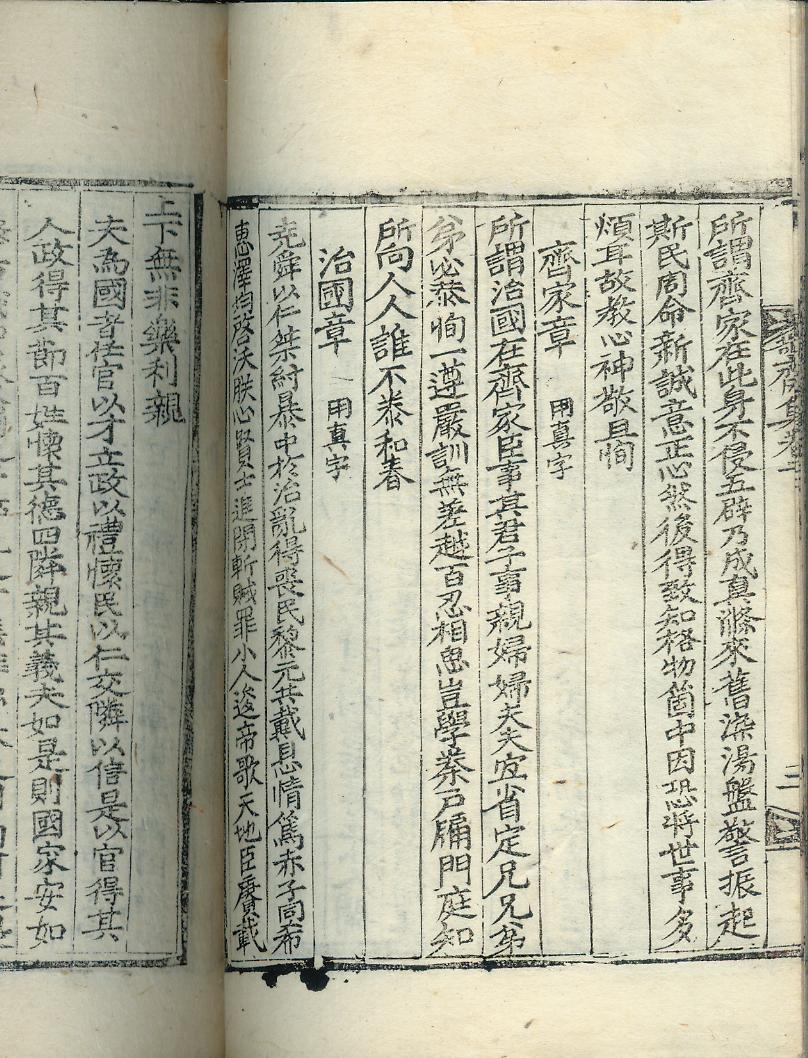 所謂齊家在此身不侵五辟乃成真滌來舊染湯盤警言振起
斯民周命新誠意正心然後得致知格物箇中因恐將世事多
煩耳故教心神敬且恂
齊家章 用真字
所謂治國在齊家臣事其君子事親婦婦夫夫宜省定兄兄弟
弟必恭恂一遵嚴訓無差越百忍相思豈學泰戸牖門庭知
所向人人誰不恭和春
治國章 用真字
堯舜以仁桀紂暴中於治亂得喪民黎元共戴恩情篤赤子同希
惠澤均啓沃朕心賢士進開斬賊罪小人逡帝歌天地臣賡載
上下無非樂利親
夫為國者任官以才立政以禮懷民以仁交隣以信是以官得其
人政得其節百姓懷其德四隣親其義夫如是則國家安如